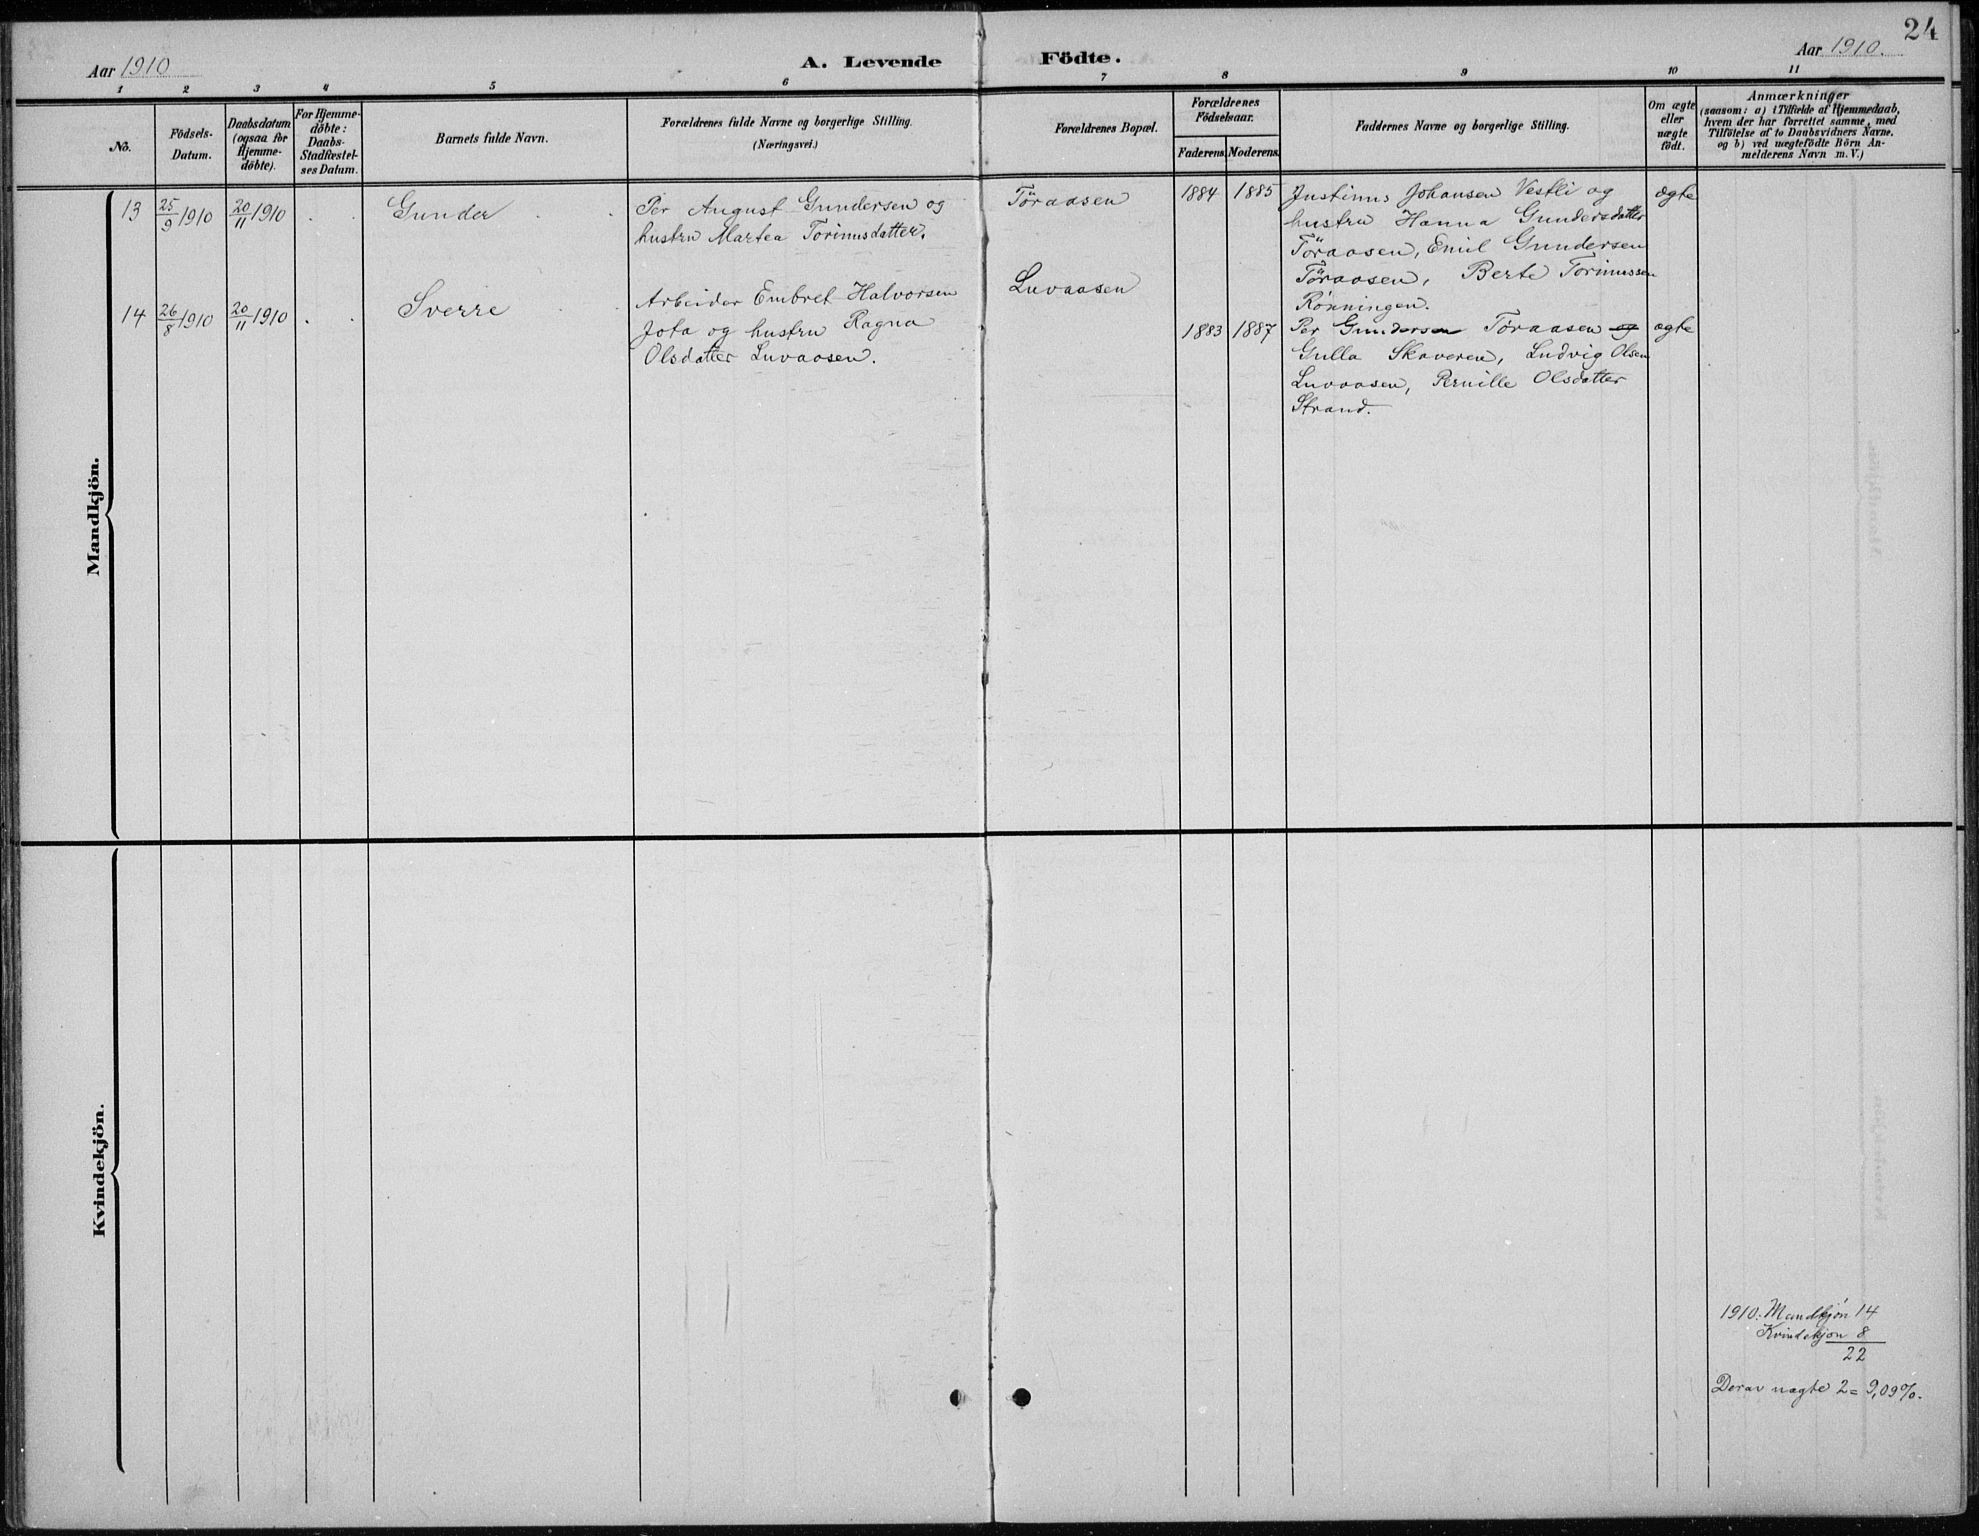 24
Aar 1910
A. Levende Födte.
Aar 1910.
1 2 3 4 5 6 7 8 9 10 11
No.
Födsels-
Datum.
Daabsdatum
(ogsaa for
Hjemme-
döbte).
For Hjemme-
döbte:
Daabs-
Stadfæstel-
ses Datum.
Barnets fulde Navn.
Forældrenes fulde Navne og borgerlige Stilling.
(Næringsvei.)
Forældrenes Bopæl.
Forældrenes
Födselsaar.
Faderens. Moderens.
Faddernes Navne og borgerlige Stilling.
Om ægte
eller
uægte
födt.
Anmærkninger
(saasom: a) i Tilfælde af Hjemmedaab,
hvem der har forrettet samme, med
Tilföielse af to Daabsvidners Navne.
og b) ved uægtefödte Börn An-
melderens Navn m. V.)
Mandkjön.
13 25/9 1910 20/11 1910 . . Gunder . .
Per August Gundersen og
hustru Martea Torinusdatter.
Töraasen
1884 1885
Justinus Johansen Vestli og
hustru Hanna Gundersdatter
Töraasen, Emil Gundersen
Töraasen, Berte Torinussen
Rönningen.
ægte
14 26/8 1910 20/11 1910 . . Sverre .
Arbeider Embret Halvorsen
Jota og hustru Ragna
Olsdatter Luvaasen.
Luvaasen
1883 1887
Per Gundersen Töraasen og
Gulla Skaveren, Ludvig Olsen
Luvaasen, Pernille Olsdatter
Strand.
ægte
Kvindekjön.
1910: Mandkjön 14
Kvindekjön 8
22
Derav uægte 2 = 9,09%.